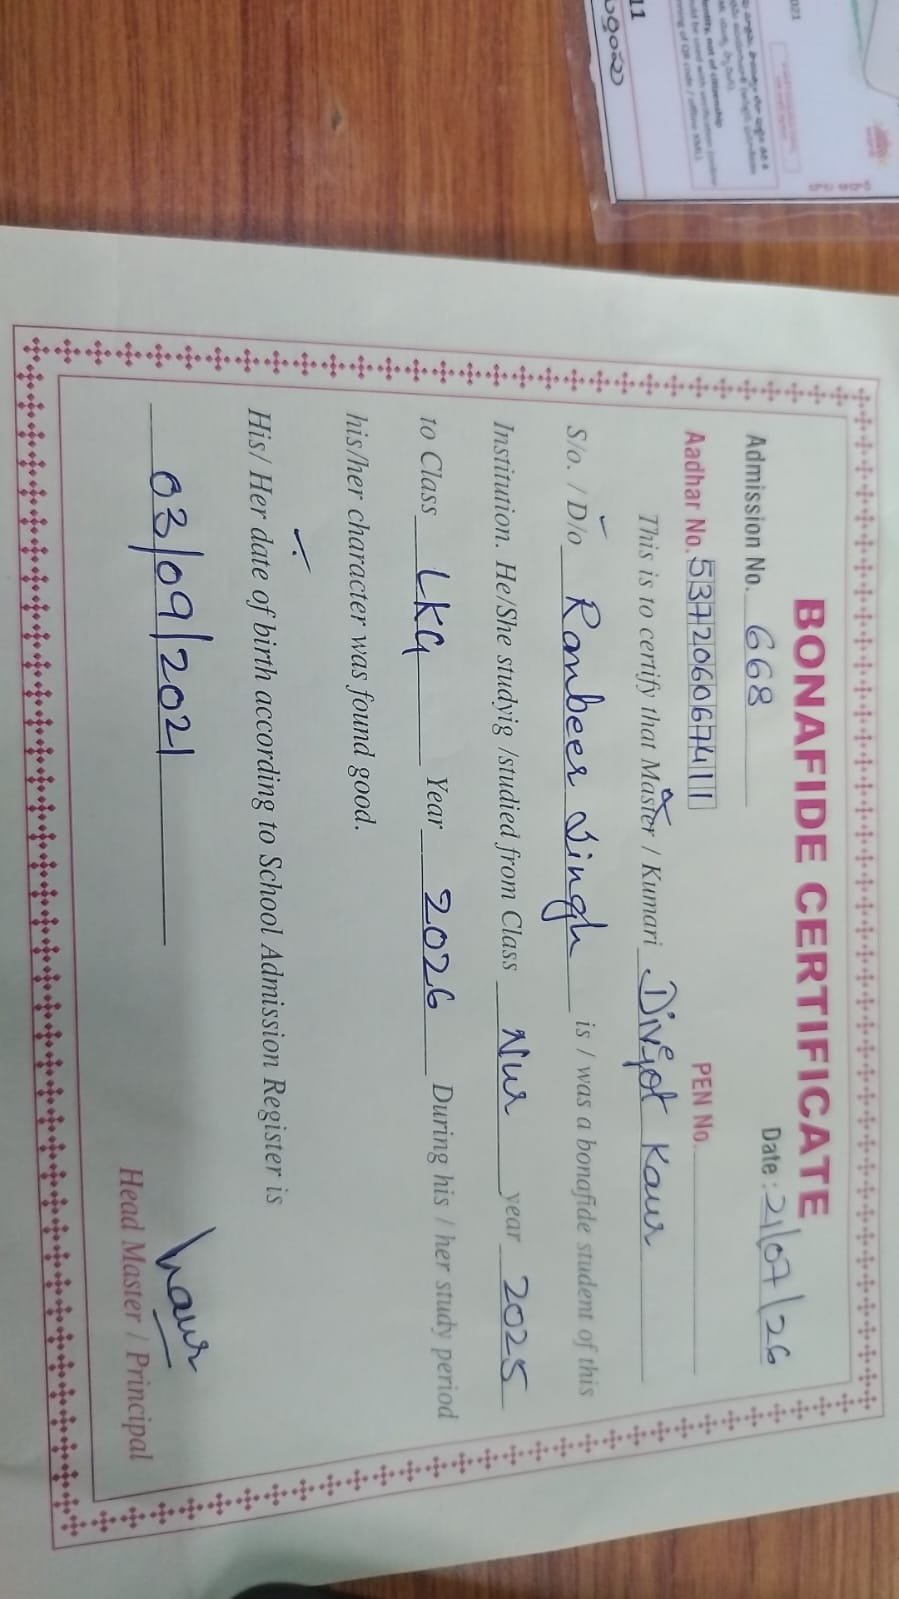 BONAFIDE CERTIFICATE
Admission No. 668 Date : 21/07/26
Aadhar No. 537206067411 PEN No.
This is to certify that Master / Kumari Divjot Kaur
S/o. / D/o Ranbeer Singh is / was a bonafide student of this
Institution. He/She studyig /studied from Class Nur year 2025
to Class LKG Year 2026 During his / her study period
his/her character was found good.
His/ Her date of birth according to School Admission Register is
03/09/2021
Kaur
Head Master / Principal
11